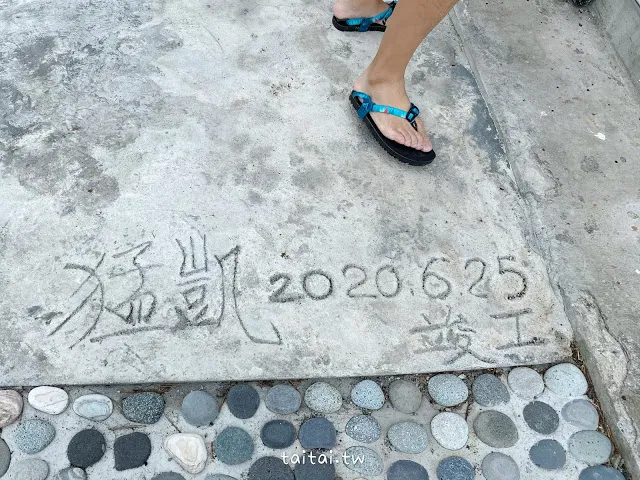 猛凱 2020.6.25
竣工
taitai.tw